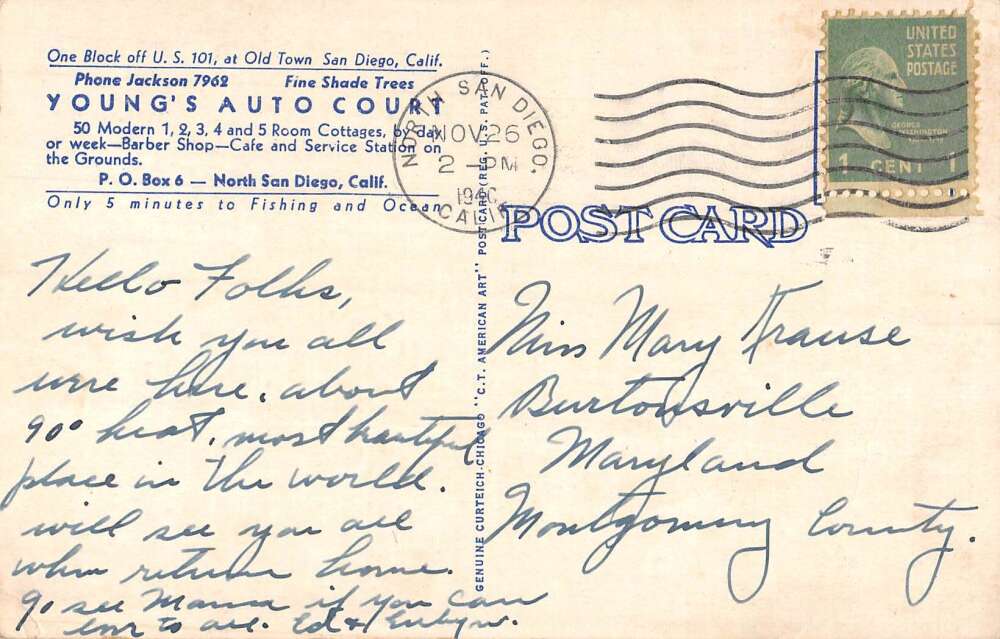 One Block off U. S. 101, at Old Town San Diego, Calif.
Phone Jackson 7962 Fine Shade Trees
YOUNG'S AUTO COURT
50 Modern 1, 2, 3, 4 and 5 Room Cottages, by day
or week—Barber Shop—Cafe and Service Station on
the Grounds.
P. O. Box 6 — North San Diego, Calif.
Only 5 minutes to Fishing and Ocean
NORTH SAN DIEGO,
NOV 26
2 - PM
194
CALIF.
UNITED
STATES
POSTAGE
GEORGE
WASHINGTON
1 CENT 1
POST CARD
GENUINE CURTEICH-CHICAGO "C.T. AMERICAN ART" POST CARD (REG. U.S. PAT. OFF.)
Hello Folks,
wish you all
were here. about
90° heat. most beautiful
place in the world.
will see you all
when return home.
go see Mama if you can
love to all. Ed &
Miss Mary Krause
Burtonsville
Maryland
Montgomery County.